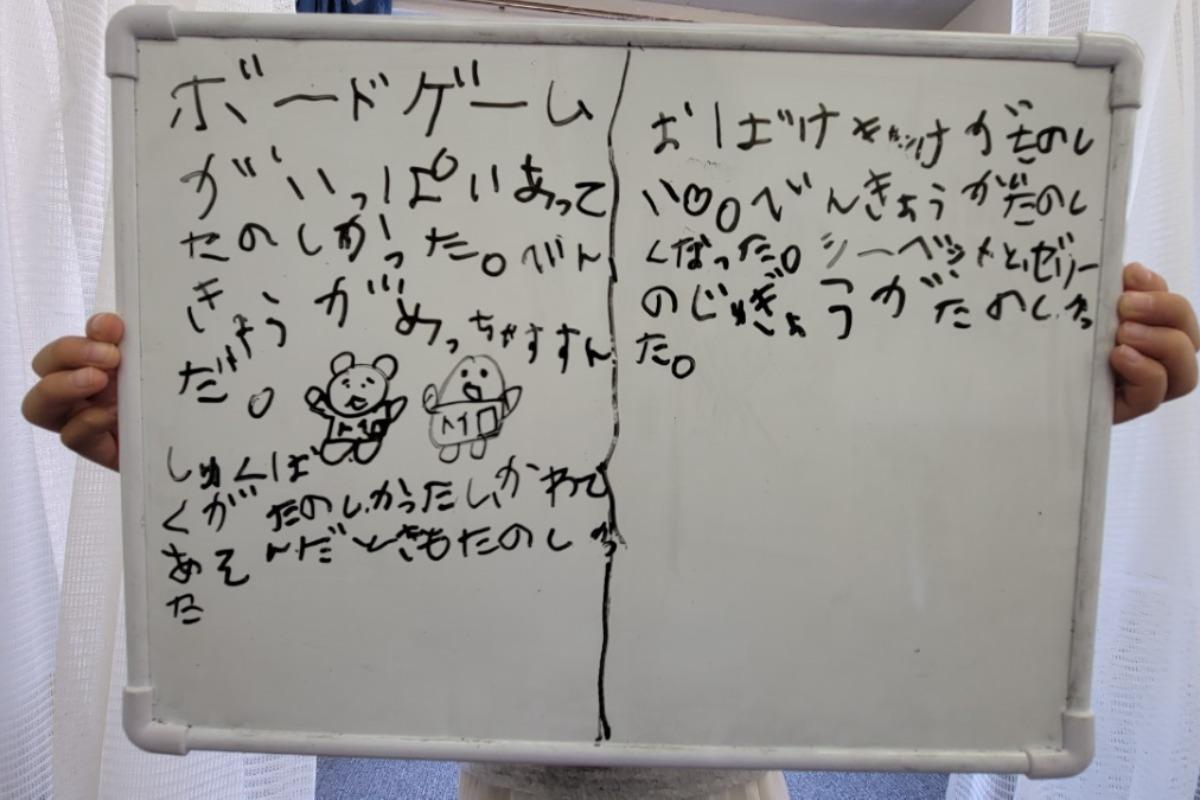 ボードゲーム
がいっぱいあって
たのしかった。べん
きょうがめっちゃすすん
だ。
トイロ
トイロ
しゅくは
くがたのしかったしかわで
あそんだときもたのしかっ
た
おばけやしきがたのし
い♡。べんきょうがたのし
くなった。シーベットとゼリー
のじゅぎょうがたのしかっ
た。